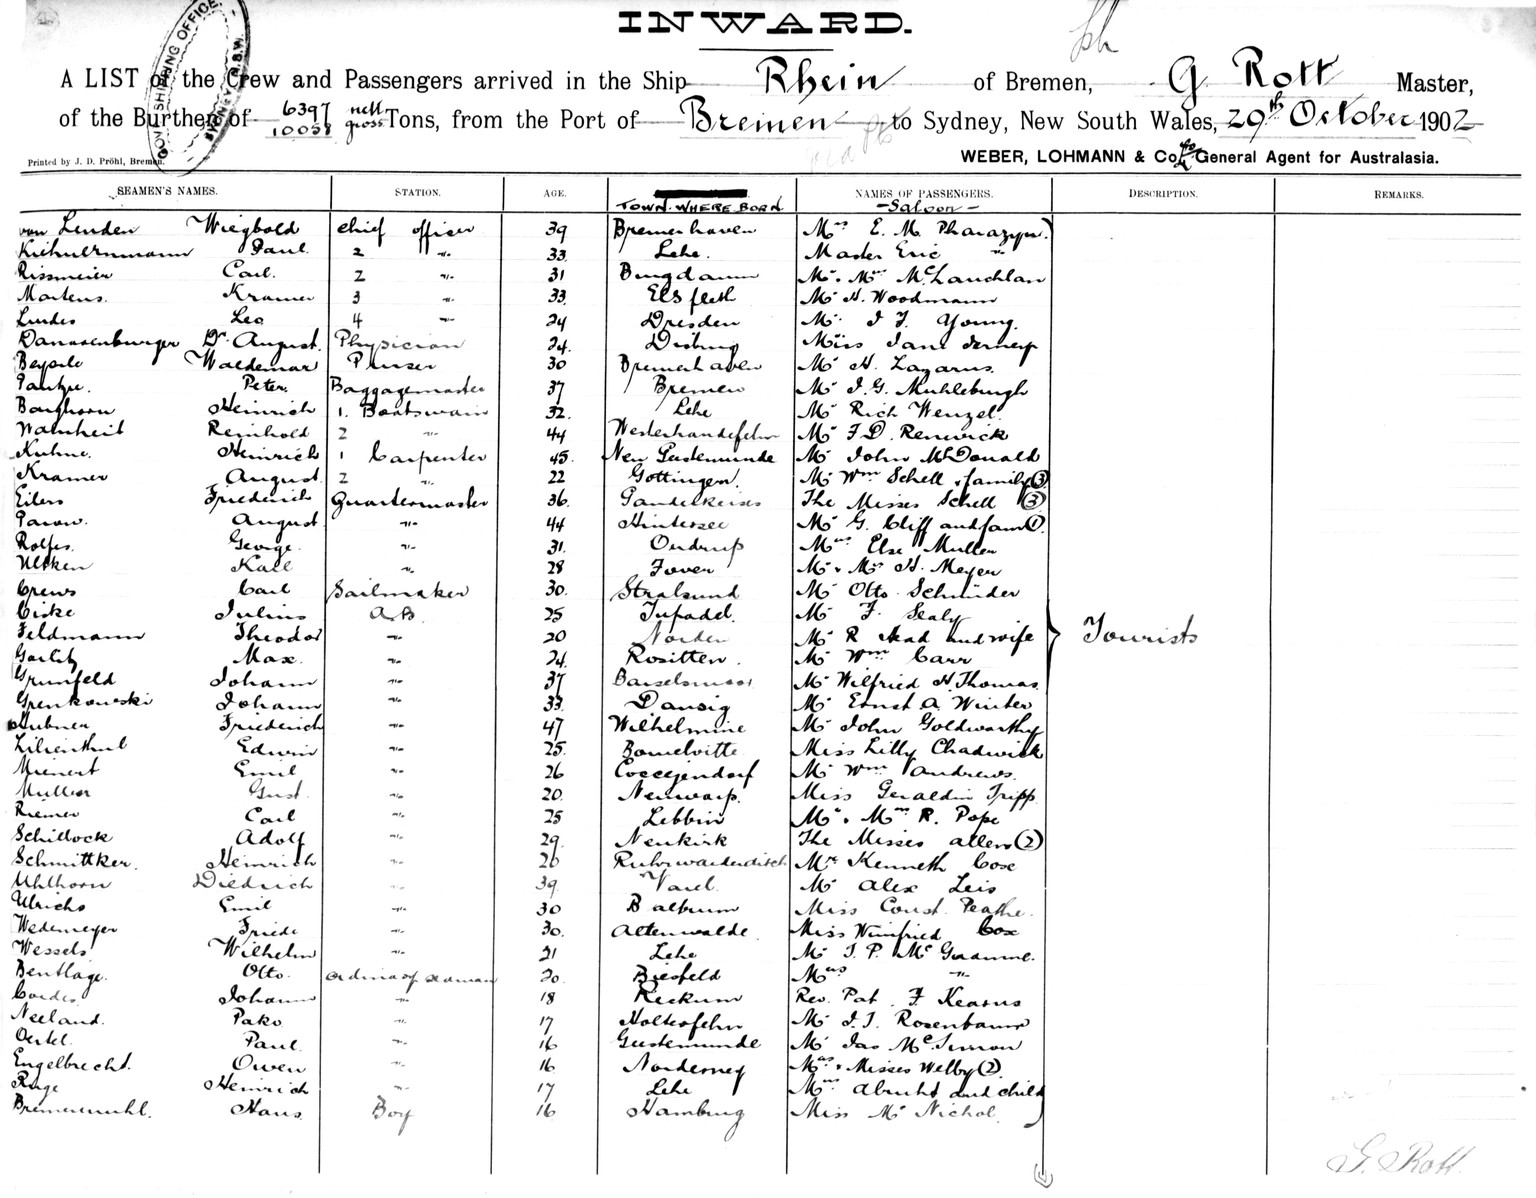 INWARD.
GOVT SHIPPING OFFICE
SYDNEY N.S.W.
A LIST of the Crew and Passengers arrived in the Ship Rhein of Bremen, G Rott Master,
of the Burthen of 6397 nett 10058 gross Tons, from the Port of Bremen to Sydney, New South Wales, 29th October 1902
Printed by J. D. Pröhl, Bremen.
WEBER, LOHMANN & Co General Agent for Australasia.
SEAMEN'S NAMES. STATION. AGE. TOWN WHERE BORN NAMES OF PASSENGERS. DESCRIPTION. REMARKS.
-Saloon-
von Linden Wiegbold chief officer 39 Bremerhaven Mrs E. M. Pharazyn.
Paul 2 -"- 33 Lehe. Master Eric -"-
Rissmeier Carl. 2 -"- 31 Mr. Mrs McLauchlan
Martens. Kramer 3 -"- 33 Elsfleth Mr H. Woodmann
Leo 4 -"- 24 Dresden Mr J J. Young.
Dannenburger Dr. August. Physician 24. Miss Jane
Waldemar Purser 30 Bremerhaven Mr H. Lazarus.
Peter. Baggagemaster 37 Bremen Mr J. G. Muhleburgh
Barghorn Heinrich 1. Boatswain 32. Lehe Mr Rich Wenzel.
Wahnheit Reinhold 2 -"- 44 Mr F. D. Renwick
Kuhne. Heinrich 1 Carpenter 45. Mr John McDonald
Kramer August 2 -"- 22 Gottingen. Mr Wm Schell & family (3)
Eilers Friederich Quartermaster 36. The Misses Schell (3)
Parow. August -"- 44 Hintersee Mr G. Cliff and fam (1)
Rolfes. George. -"- 31. Ordrup Mrs Else Muller
Ulken Karl -"- 28 Jever Mr & Mrs H. Meyer
Crews Carl Sailmaker 30. Stralsund Mr Otto Schnüder
Ciske Julius A.B. 25 Tupadel. Mr F. Sealy
Feldmann Theodor -"- 20 Norden Mr R Mad and wife Tourists
Max. -"- 24. Rositten. Mr Wm Carr
Grunfeld Johann -"- 37 Mr Wilfried H. Thomas.
Grenkowski Johann -"- 33. Danzig Mr Ernst A Winter
Hubner Friederich -"- 47 Wilhelmine Mr John Goldworthy
Lilienthal Edwin -"- 25. Bomelvitte Miss Lilly Chadwick
Mienert Emil -"- 26 Coccejendorf Mr Wm Andrews.
Muller Gust. -"- 20. Neuwarp. Miss Geraldin Tripp
Riemer Carl -"- 25 Lebbin Mr. Mrs R. Pope
Schillock Adolf -"- 29. Neukirk The Misses Allen (2)
Schmittker. Heinrich -"- 26 Mr Kenneth Cox
Uhlhorn Diedrich -"- 39. Varel. Mr Alex Leis
Ulrichs Emil -"- 30 Baltrum Miss Const.
Wedemeyer Friede -"- 30. Altenwalde. Miss Winifried Cox
Wessels Wilhelm -"- 21 Lehe Mr J. P.
Bentlage. Otto. ordinary seaman 20. Biesfeld Mrs -"-
Cordes Johann -"- 18 Reckum Rev. Pat. F Kearns
Neeland. Pako -"- 17 Holterfehn Mr J. J. Rosenbaum
Oertel. Paul -"- 16 Geestemunde Mr Jas
Engelbrecht. Owen -"- 16 Norderney Mrs & Misses Welby (2)
Ruge Heinrich -"- 17 Lehe Mrs and child
Bremermuhl. Hans Boy 16 Hamburg Miss Mc Nichol
G. Rott.